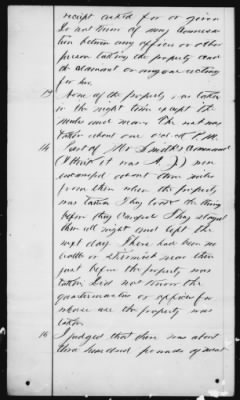 receipt asked for or given
Do not know of any conversa
tion between any officer or other
person taking the property and
the claimant or anyone acting
for her.
13 None of the property was taken
in the night time except the
mules and mare. The rest was
taken about one o'clock P.M.
14 Part of Mr Smith's command
(I think it was A. J.) was
encamped about three miles
from where the property
was taken. They took the things
before they camped. They stayed
there all night and left the
next day. There had been no
battle or skirmish near there
just before the property was
taken. Did not know the
quartermaster or officers for
whose use the property was
taken.
16 I judged that there was about
three hundred pounds of meat